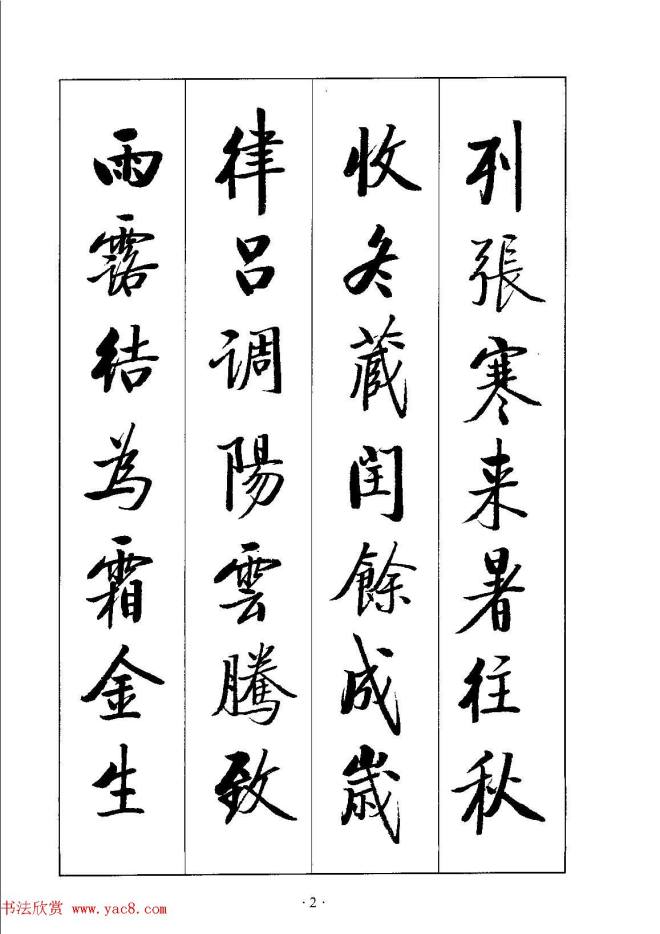 列張寒来暑往秋
收冬蔵闰餘成歳
律吕调陽雲騰致
雨露结為霜金生
·2·
书法欣赏 www.yac8.com